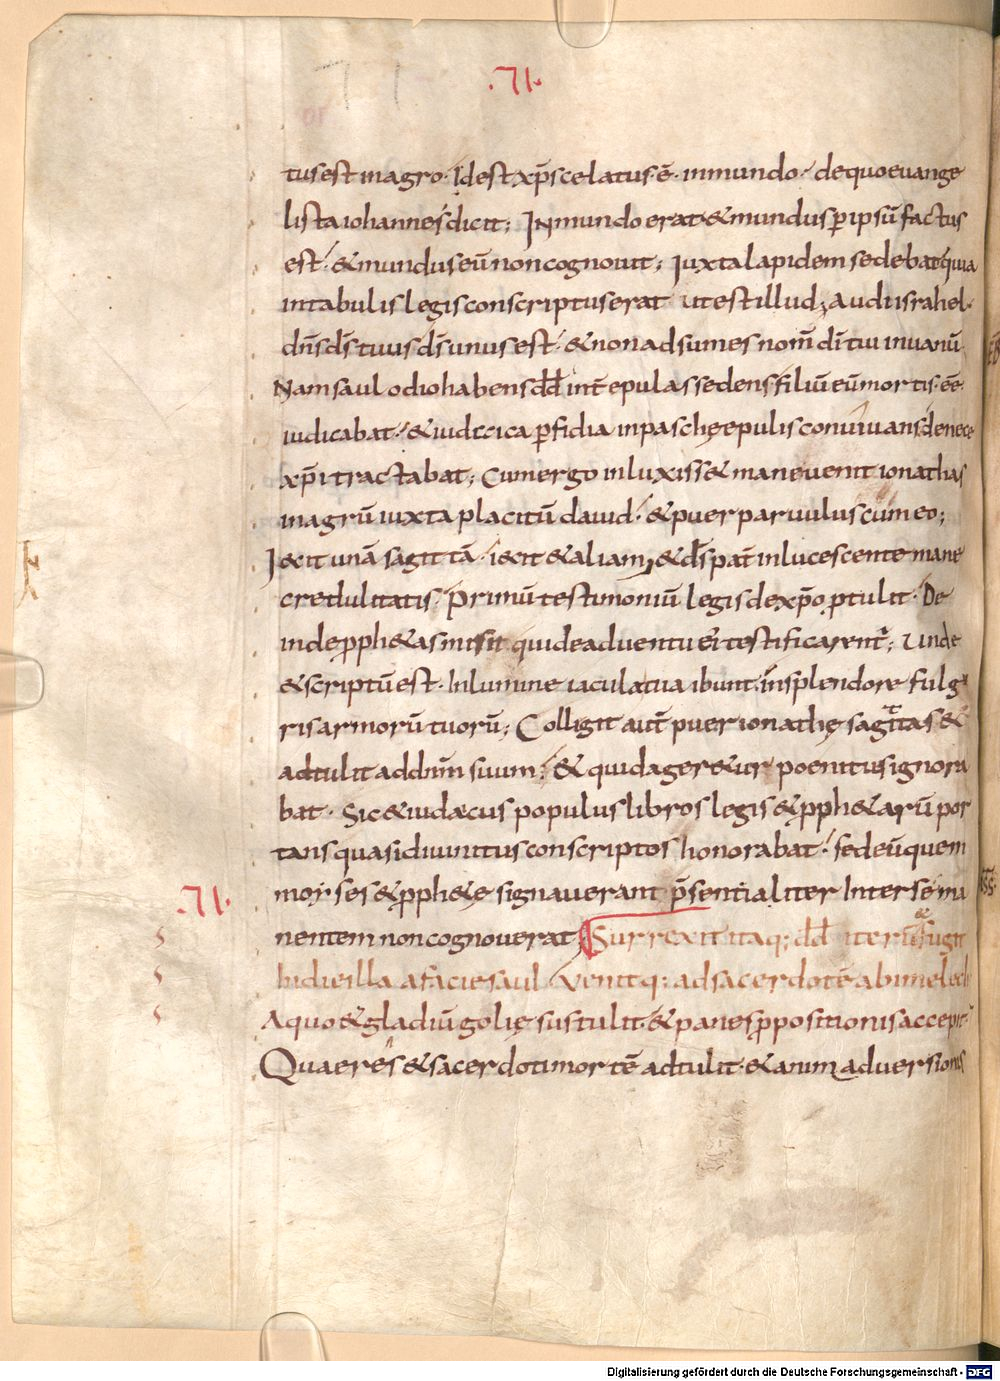 ·71·
tus est in agro· Id est xp̄s celatus ē· in mundo· de quo evange
lista iohannes dicit; In mundo erat & mundus p̄ ipsū factus
est· & mundus eū non cognovit; Iuxta lapidem sedebat quia
in tabulis legis conscriptus erat ut est illud; Audi israhel·
dn̄s ds̄ tuus ds̄ unus est· & non adsumes nom̄ dī tui in vanū
Nam saul odio habens dd̄ int̄ epulas sedens filiū eū mortis· eē
iudicabat· & iudaica p̄fidia in paschę epulis convivans de nece
xp̄i tractabat; Cum ergo inluxiss& mane venit ionathas
in agrū iuxta placitū david· & puer parvulus cum eo;
Iecit unā sagittā· iecit & aliam; & ds̄ pat̄ inlucescente mane
credulitatis· Primū testimoniū legis de xp̄o p̄tulit· De
inde p̄ph&as misit qui de adventu ei testificarent̄; Unde
& scriptū est· In lumine iacula tua ibunt in splendore fulg
ris armorū tuorū; Colligit aut̄ puer ionathę sagittas &
adtulit ad dn̄m suum· & quid ager&ur poenitus ignora
bat· Sic & iudæcus populus libros legis & p̄ph&arū por
tans quasi divinitus conscriptos honorabat· sed eū quem
moyses & p̄ph&ę signaverant p̄sentialiter inter se ma
nentem non cognoverat
·71·
Surrexit itaq; dd̄ iterū & fugit
bi die illa a facie saul Venitq; ad sacerdotē abimelech
A quo & gladiū golię sustulit· & panes p̄positionis accepit·
Quae res & sacerdoti mortē adtulit· & animadversionis
Digitalisierung gefördert durch die Deutsche Forschungsgemeinschaft - DFG